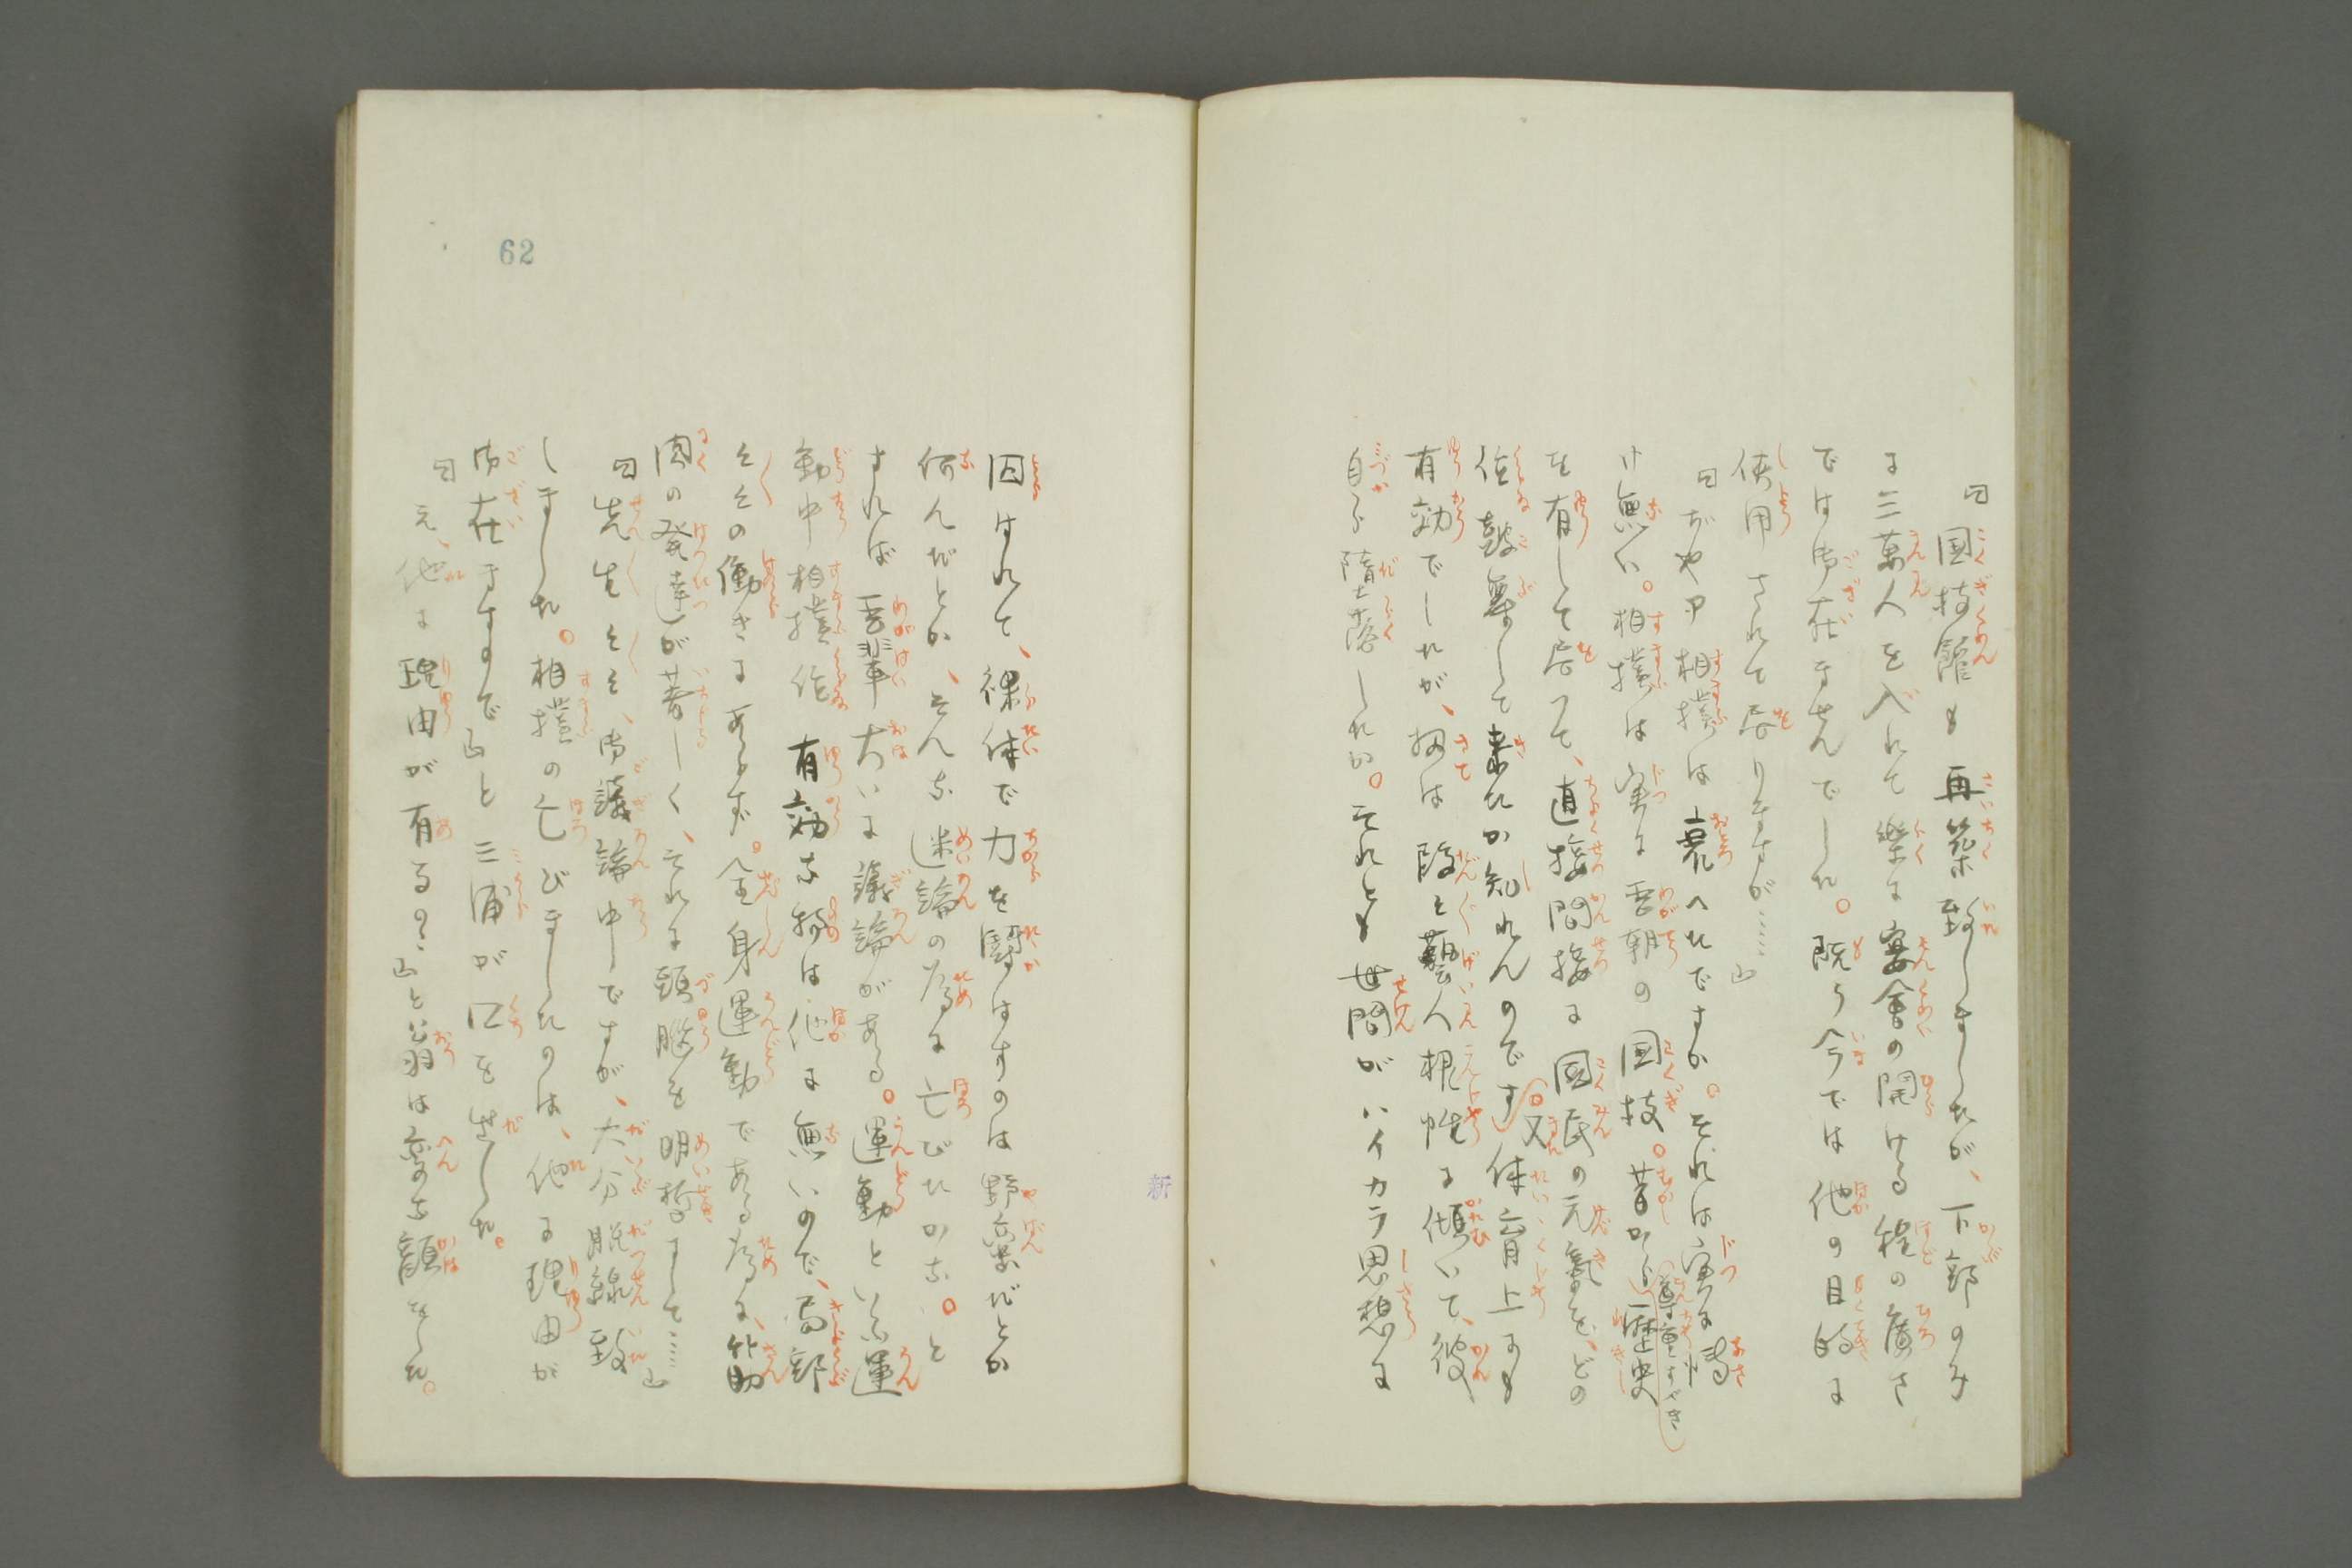 「国技館も再築致しましたが、下部のみ
に三萬人を入れて楽に宴會の開ける程の廣さ
では御在ませんでした。既う今では他の目的に
使用されて居りますが……」
「ぢやア相撲は衰へたですか。それは実に
け無い。相撲は実に吾朝の国技。昔から尊重すべき歴史
を有して居つて、直接間接に国民の元氣を、どの
位鼓舞して来たか知れんのです。又体育上にも
有効でしたが、扨は段々藝人根性に傾いて、彼
自ら堕落したか。それとも世間がハイカラ思想に
新
囚はれて、裸体で力を闘はすのは野蛮だとか
何んだとか、そんな迷論の為に亡びたかな。と
すれば吾輩大いに議論がある。運動といふ運
動中相撲位有効な物は他に無いので、局部
々々の働きにあらず。全身運動である為に、筋
肉の発達が著しく、それに頭脳を明晳にして……」
「先生々々、御議論中ですが、大分脱線致
しました。相撲の亡びましたのは、他に理由が
御在ますので」と三浦が口を出した。
「え、他に理由が有るの?」と翁は変な顔をした。
62